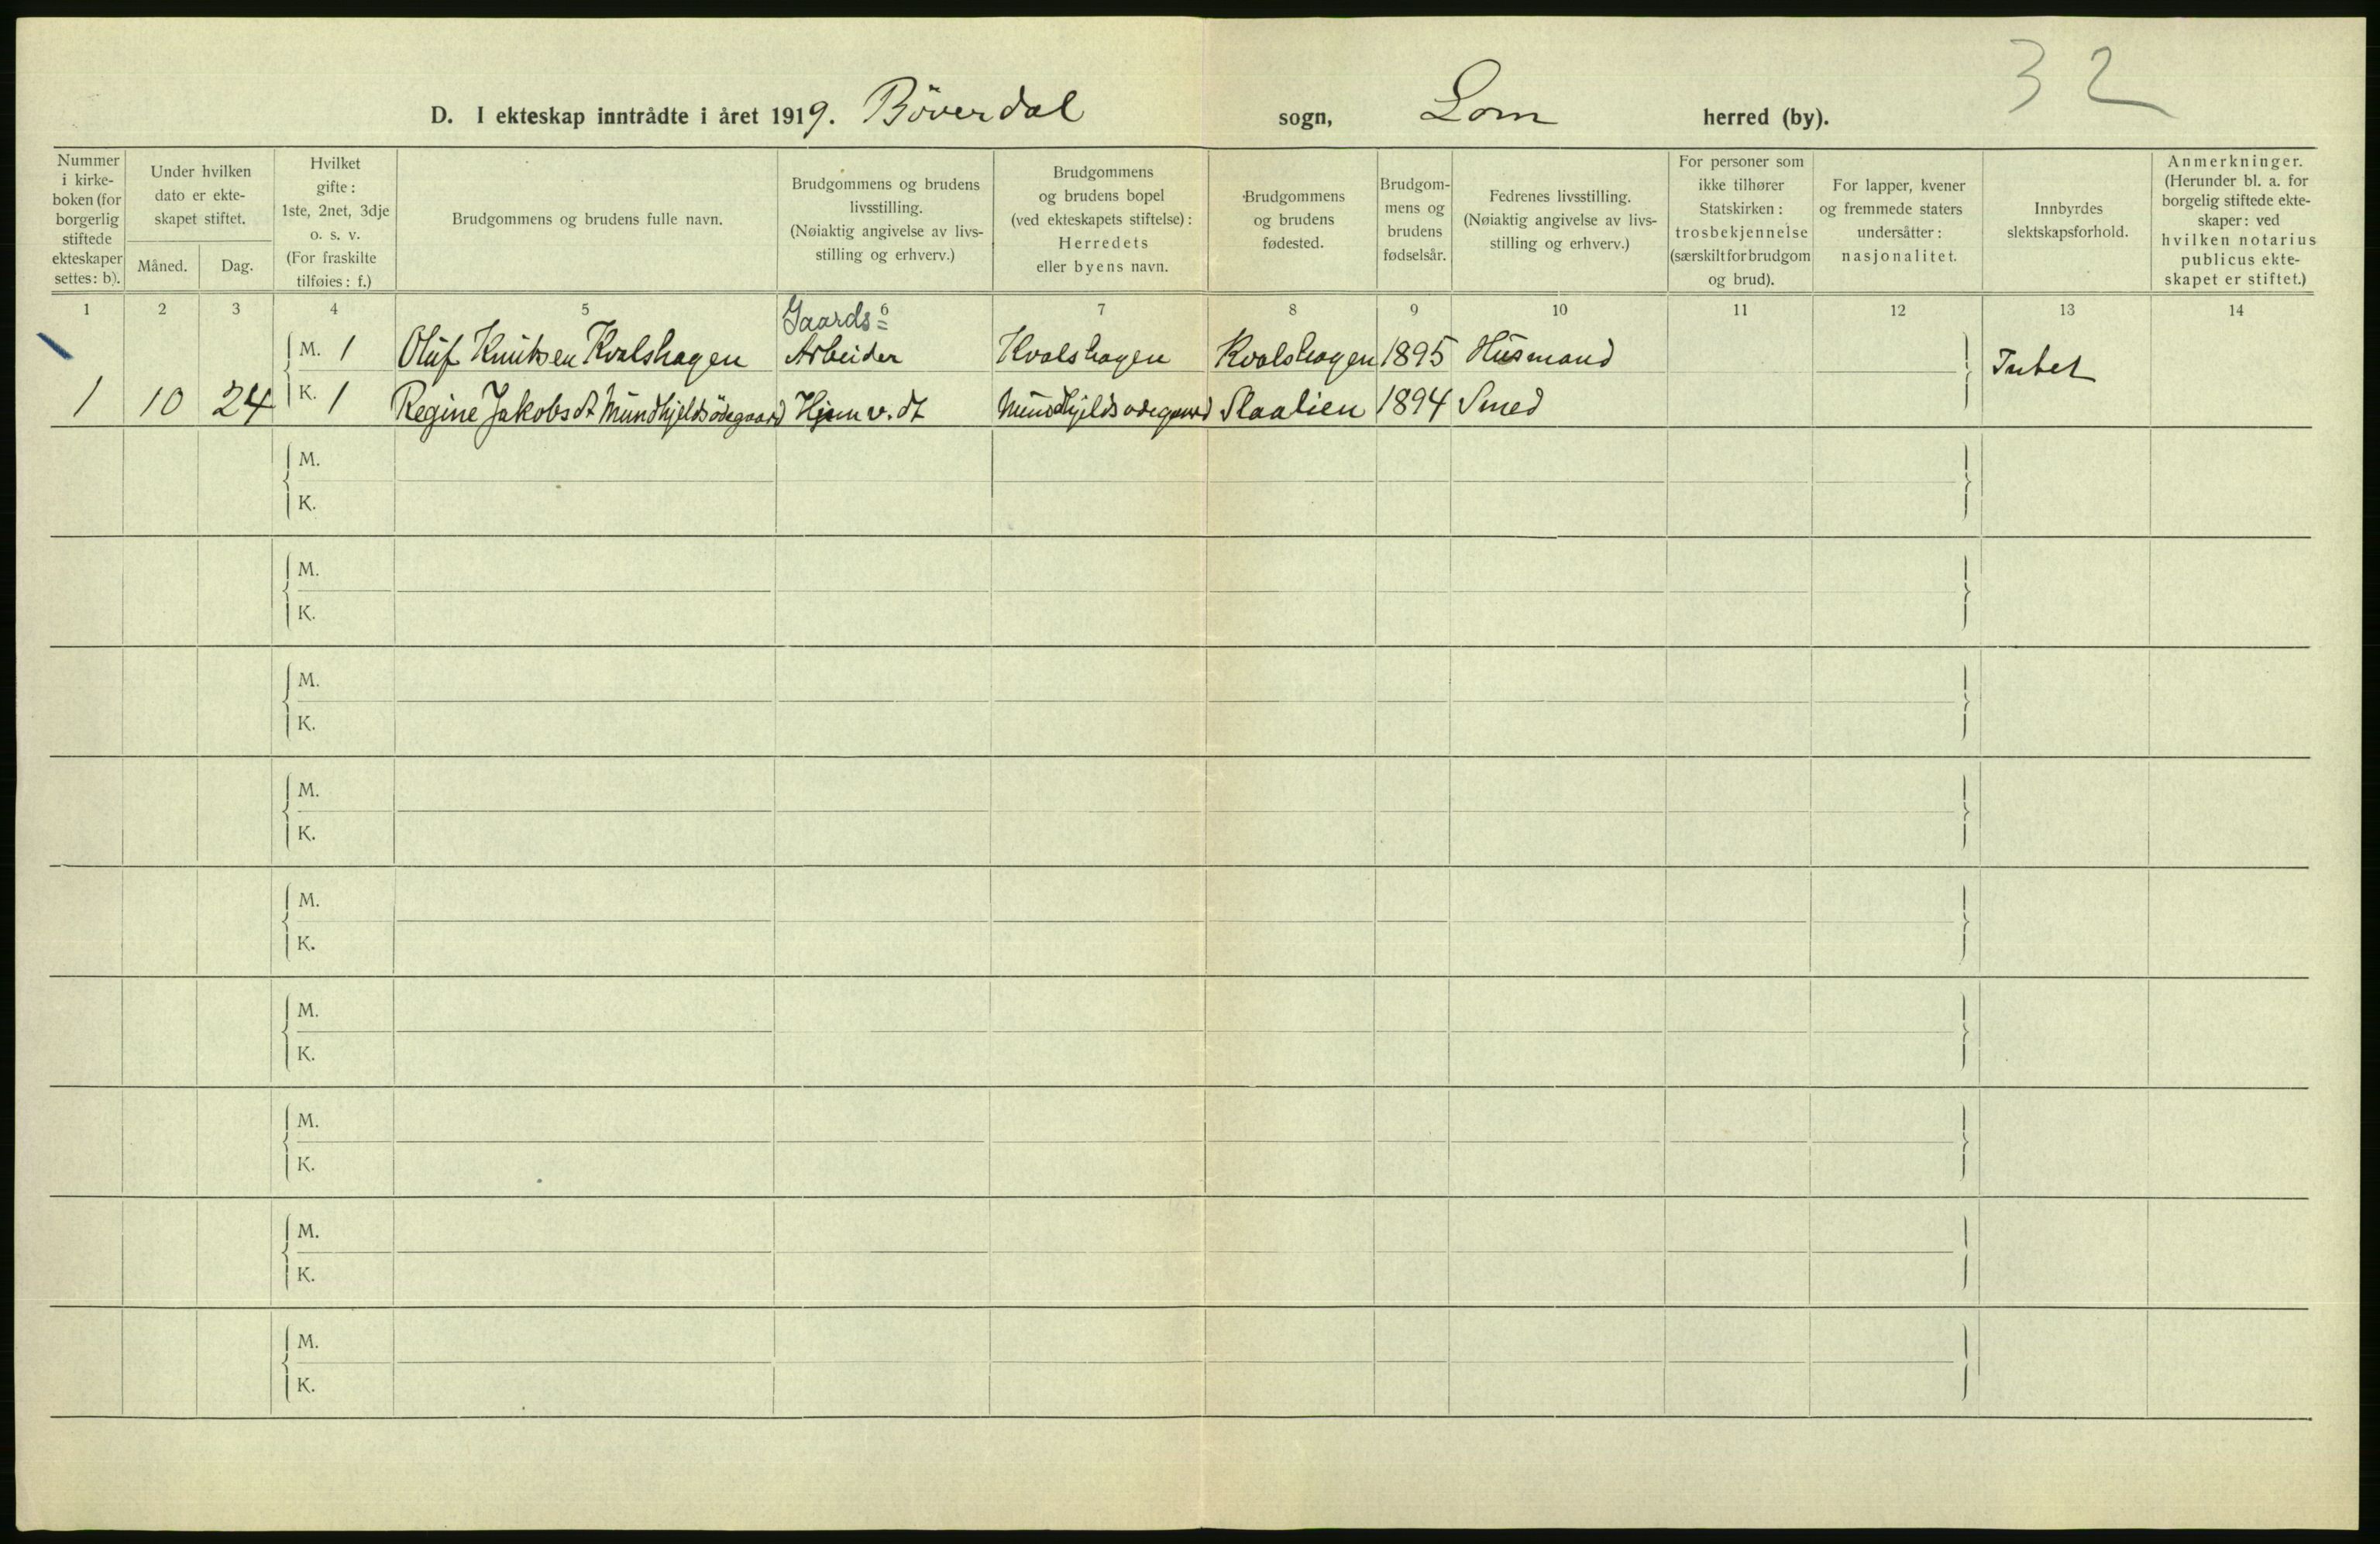 32
D. I ekteskap inntrådte i året 1919. Böverdal sogn, Lom herred (by).
Nummer i kirke-boken (for borgerlig stiftede ekteskaper settes: b).
Under hvilken dato er ekte-skapet stiftet.
Måned.
Dag.
Hvilket gifte: 1ste, 2net, 3dje o. s. v. (For fraskilte tilføies: f.)
Brudgommens og brudens fulle navn.
Brudgommens og brudens livsstilling. (Nøiaktig angivelse av livs-stilling og erhverv.)
Brudgommens og brudens bopel (ved ekteskapets stiftelse): Herredets eller byens navn.
Brudgommens og brudens fødested.
Brudgom-mens og brudens fødselsår.
Fedrenes livsstilling. (Nøiaktig angivelse av livs-stilling og erhverv.)
For personer som ikke tilhører Statskirken: trosbekjennelse (særskilt for brudgom og brud).
For lapper, kvener og fremmede staters undersåtter: nasjonalitet.
Innbyrdes slektskapsforhold.
Anmerkninger. (Herunder bl. a. for borgelig stiftede ekte-skaper: ved hvilken notarius publicus ekte-skapet er stiftet.)
1 2 3 4 5 6 7 8 9 10 11 12 13 14
Gaards=
M. 1 Oluf Knutsen Kvalshagen Arbeider Kvalshagen Kvalshagen 1895 Husmand Intet
1 10 24 K. 1 Regine Jakobsdt Mundhjeldsödegaard Hjem v. dt Mundhjeldsodegaard Slaalien 1894 Smed
M.
K.
M.
K.
M.
K.
M.
K.
M.
K.
M.
K.
M.
K.
M.
K.
M.
K.